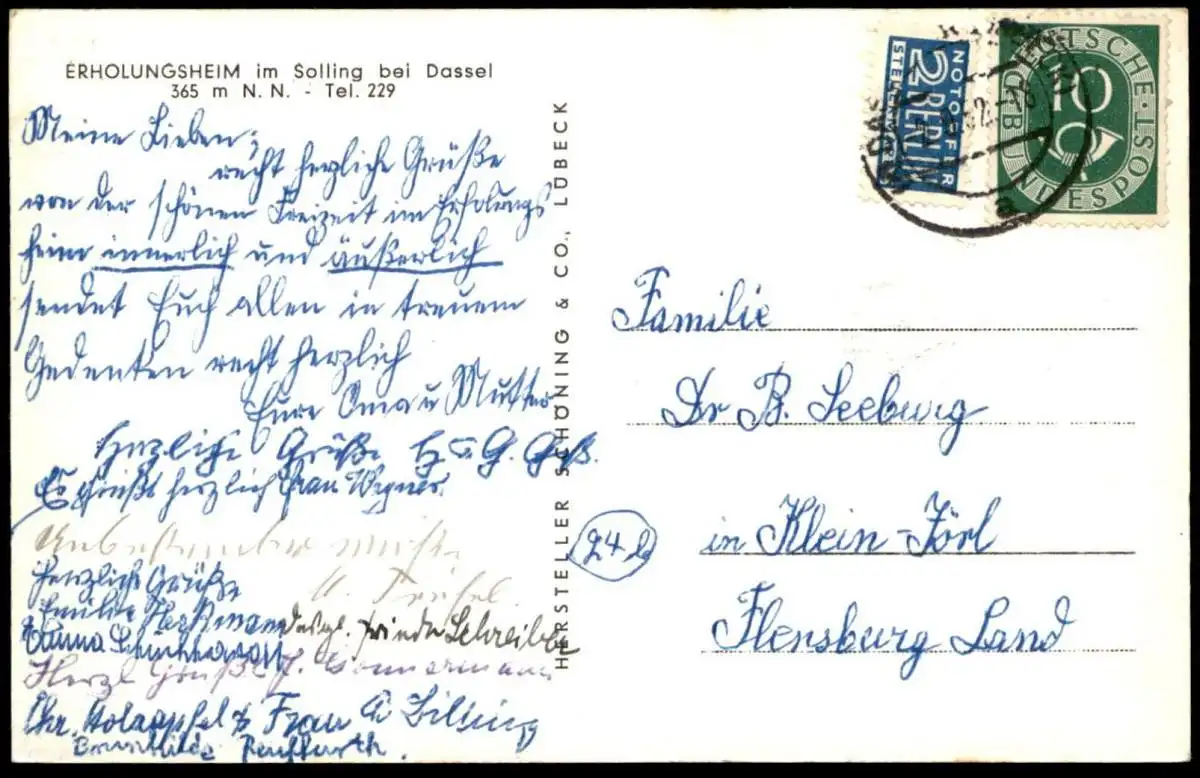 ERHOLUNGSHEIM im Solling bei Dassel
365 m N. N. - Tel. 229
Meine Lieben;
recht herzliche Grüße
von der schönen Freizeit im Erholungs
heim innerlich und äußerlich
sendet Euch allen in treuem
Gedenken recht herzlich
Eure Oma u Mutter
Herzliche Grüße H u G.
Es grüßt herzlich Frau Wegner.
Herzliche Grüße
Emilie
desgl. Frieda Schreiber
Herzl Grüße
Chr. Holzapfel & Frau
HERSTELLER SCHÖNING & CO., LÜBECK
NOTOPFER
2 BERLIN
STEUERMARKE
DEUTSCHE BUNDESPOST
10
a
Familie
Dr B. Seeburg
24b
in Klein-Jörl
Flensburg Land